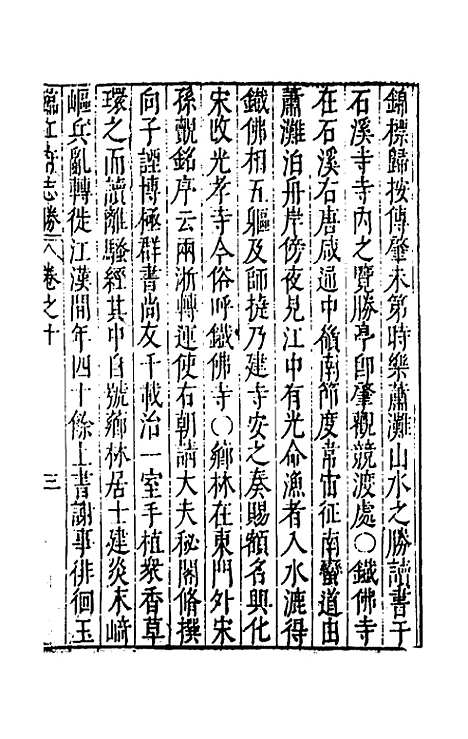 錦標歸按傳肇未第時樂蕭灘山水之勝讀書于
石溪寺寺內之覽勝亭卽肇觀競渡處○鐵佛寺
在石溪右唐咸通中嶺南節度常宙征南蠻道由
蕭灘泊舟岸傍夜見江中有光命漁者入水漉得
鐵佛相五軀及師㨗乃建寺安之奏賜額名興化
宋改光孝寺今俗呼鐵佛寺○薌林在東門外宋
孫覿銘序云兩浙轉運使右朝請大夫秘閣脩撰
向子諲博極群書尚友千載治一室手植衆香草
環之而讀離騷經其中自號薌林居士建炎末崎
嶇兵亂轉徙江漢間年四十餘上書謝事徘徊玉
志勝 卷之十 三